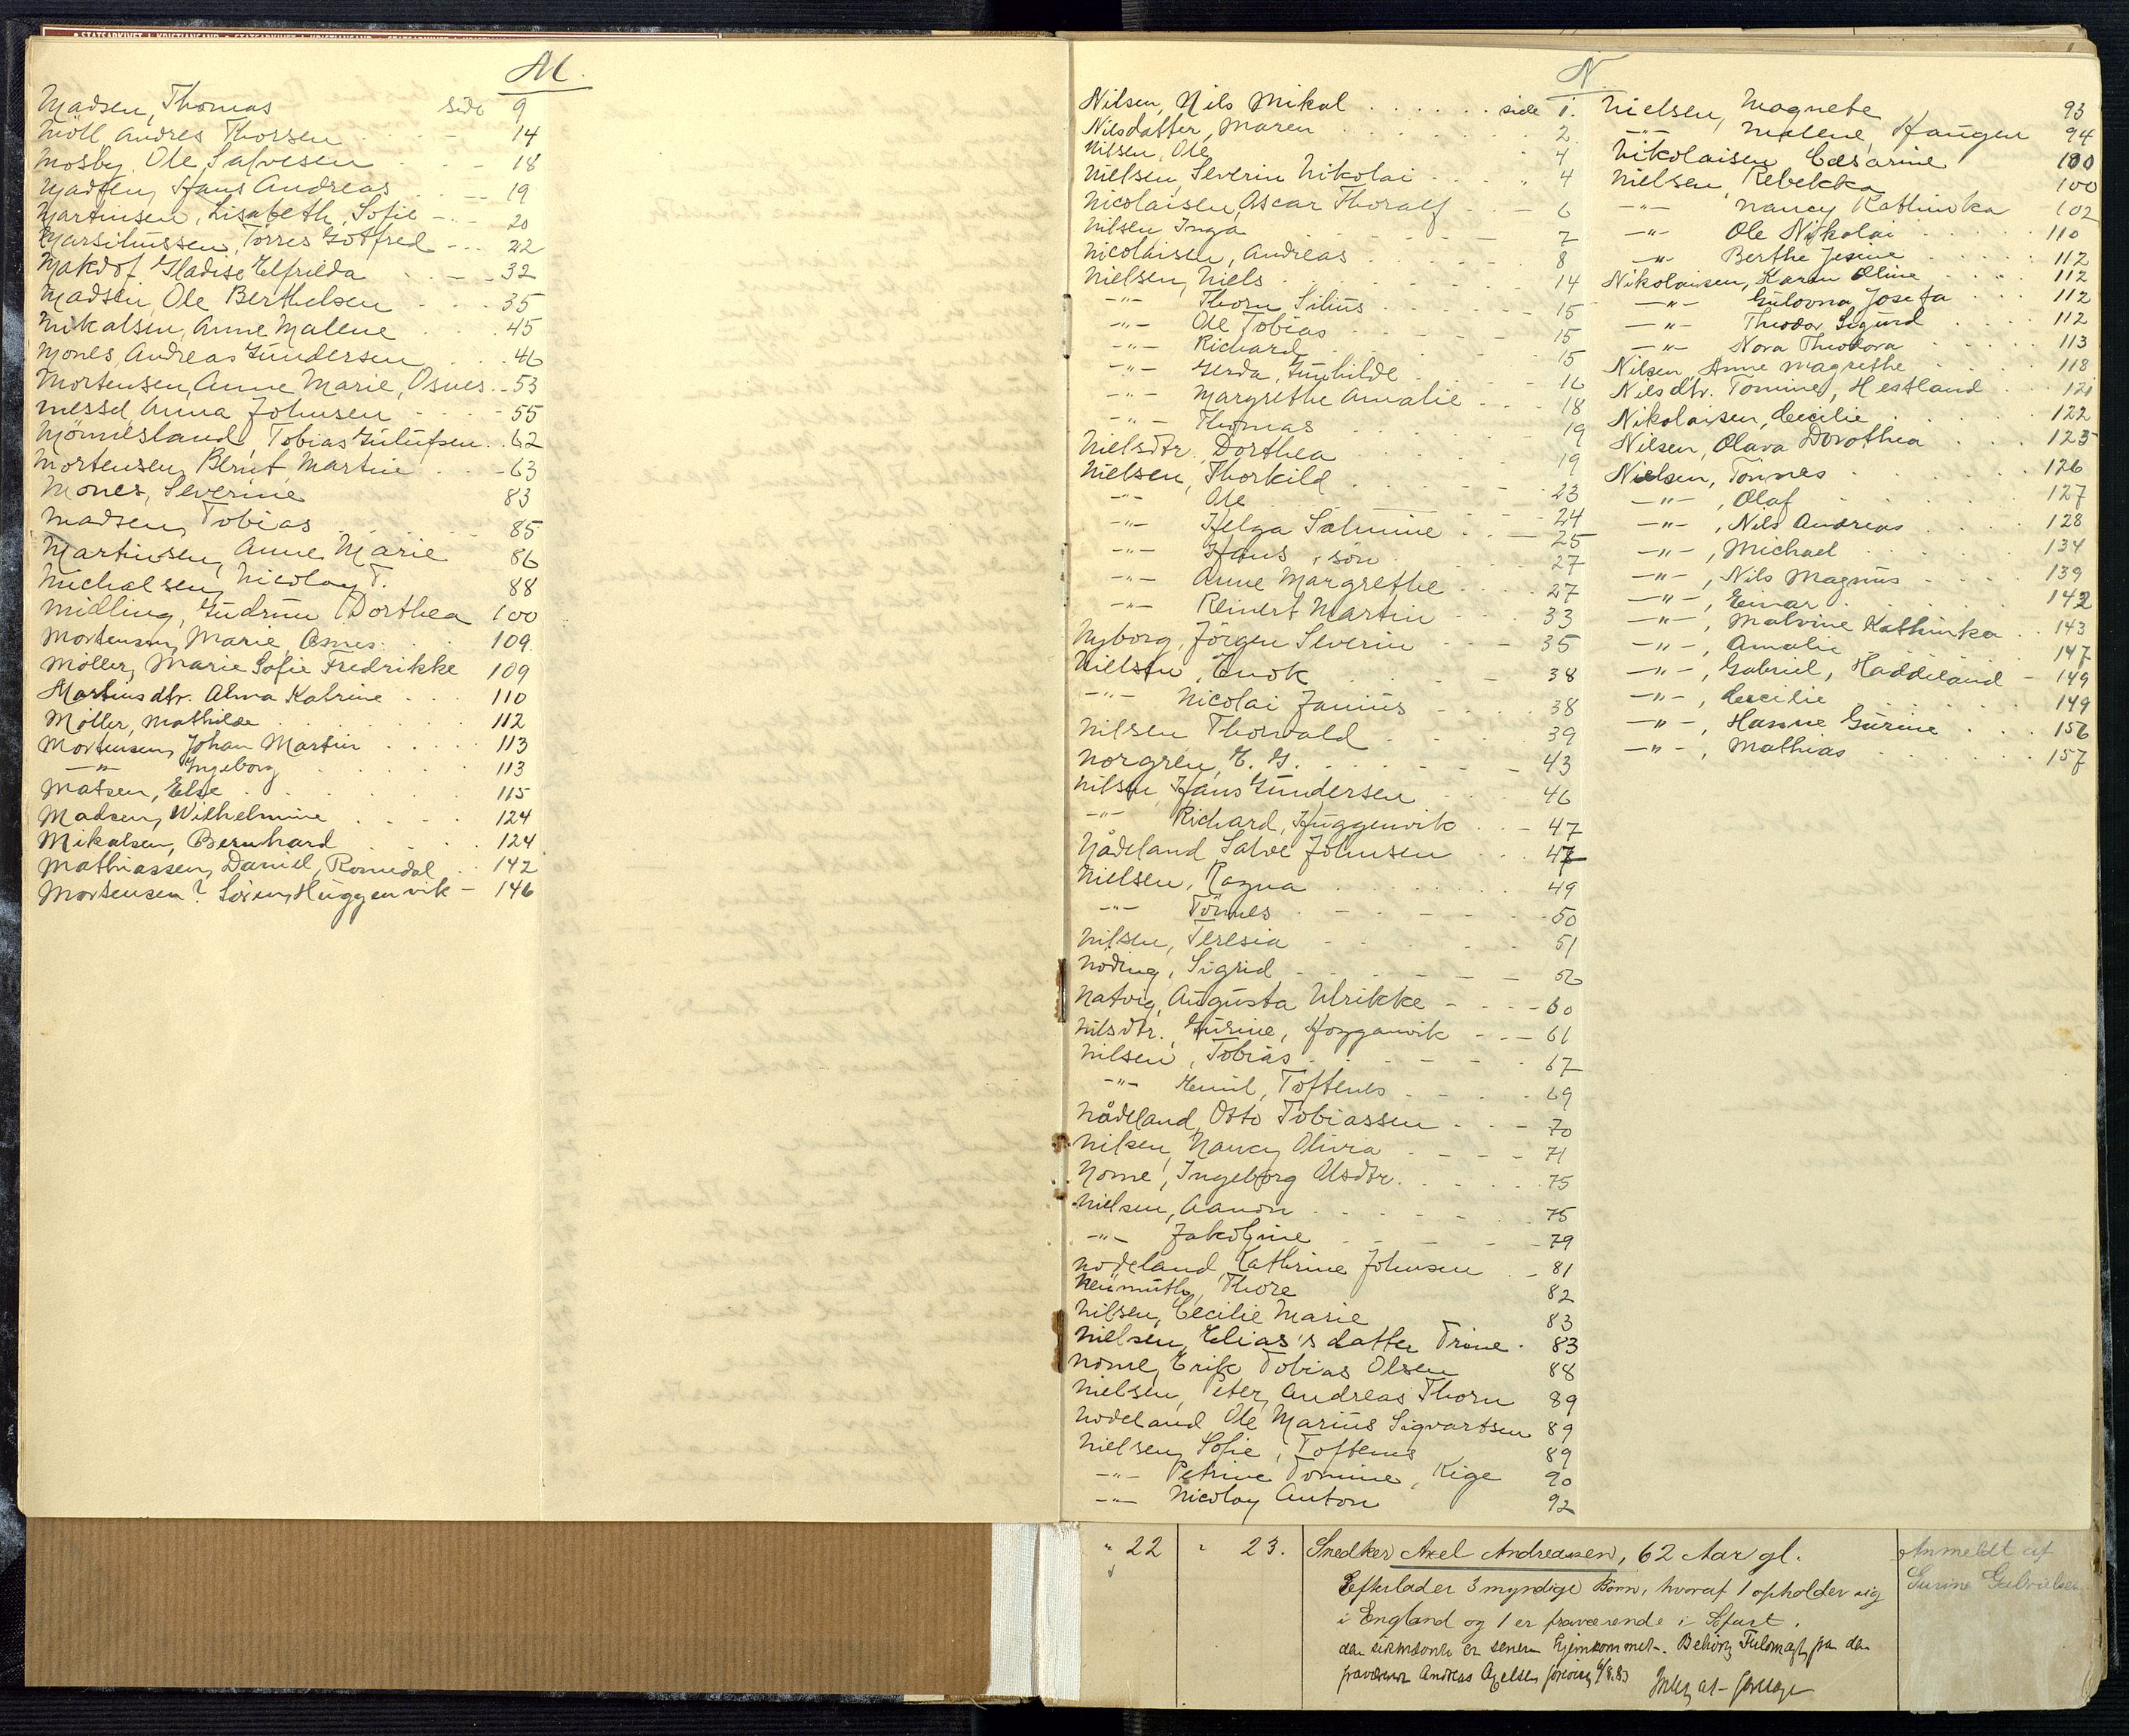 STATSARKIVET I KRISTIANSAND • STATSARKIVET I KRISTIANSAND • STATSARKIVET I KRISTIANSAND
M.
Madsen, Thomas side 9
Möll Andres Thorsen 14
Mosby, Ole Salvesen 18
Madsen, Hans Andreas 19
Martinsen, Lisabeth, Sofie 20
Marsiliussen, Törres Gotfred 22
Makdof Gladise Elfrida 32
Madsen Ole Berthelsen 35
Mikalsen, Anne Malene 45
Mones, Andreas Gundersen 46
Mortensen, Anne Marie, Osnes 53
Messel, Anna Johnsen 55
Mönnesland, Tobias Gulufsen 62
Mortensen, Bernt Martin 63
Mones, Severine 83
Madsen, Tobias 85
Martinsen, Anne Marie 86
Michalsen, Nicolay T. 88
Midling, Gudrun Dorthea 100
Mortensen, Marie, Osnes 109
Möller, Marie Sofie Fredrikke 109
Martinsdtr. Alma Katrine 110
Möller, Mathilde 112
Mortensen, Johan Martin 113
—"— Ingeborg 113
Matsen, Else 115
Madsen, Wilhelmine 124
Mikalsen, Bernhard 124
Mathiassen, Daniel, Romedal 142
Mortensen? Sören, Huggenvik 146
N.
Nilsen, Nils Mikal side 1.
Nilsdatter, Maren 2
Nilsen, Ole 4
Nielsen, Severin Nikolai 4
Nicolaisen, Oscar Thoralf 6
Nilsen Inga 7
Nicolaisen, Andreas 8
Nielsen, Niels 14
-"- Thorn Silius 15
-"- Ole Tobias 15
-"- Richard 15
-"- Gerda, Gunhilde 16
-"- Margrethe Amalie 18
-"- Thomas 19
Nielsdtr. Dorthea 19
Nielsen, Thorkild 23
-"- Ole 24
-"- Helga Salmine 25
-"- Hans, sön 27
-"- Anne Margrethe 27
-"- Reinert Martin 33
Nyborg, Jörgen Severin 35
Nielsen, Enok 38
-"- Nicolai Junius 38
Nilsen Thorvald 39
Norgren, E. G. 43
Nilsen Hans Gundersen 46
-"- Richard, Huggenvik 47
Nådeland, Salve Johnsen 47
Nielsen, Ragna 49
-"- Tönnes 50
Nilsen, Teresia 51
Nöding, Sigrid
Natvig, Augusta Ulrikke 60
Nilsdtr. Gurine, Hogganvik 61
Nilsen, Tobias 67
-"- Emil, Toftenes 69
Nådeland, Otto Tobiassen 70
Nilsen, Nancy Olivia 71
Nome, Ingeborg Olsdtr. 75
Nielsen, Aanon 75
-"- Jakobine 79
Nodeland, Kathrine Johnsen 81
Neumuth, Thore 82
Nilsen, Cecilie Marie 83
Nielsen, Elias's datter Trine 83
Nome, Erik Tobias Olsen 88
Nielsen, Peter Andreas Thorn 89
Nodeland Ole Marius Sigvartsen 89
Nielsen, Sofie, Toftenes 89
-"- Petrine Tomine, Kige 90
-"- Nicolay Anton 92
Nielsen, Magnete 93
—"— Malene, Haugen 94
Nikolaisen, Cesarine 100
Nielsen, Rebekka 100
—"— Nancy Kathinka 102
—"— Ole Nikolai 110
—"— Berthe Jesine 112
Nikolaisen, Karen Oline 112
—"— Gulovna Josefa 112
—"— Theodor Sigurd 112
—"— Nora Theodora 113
Nilsen, Anne Magrethe 118
Nilsdtr. Tomine, Hestland 121
Nikolaisen, Cecilie 122
Nilsen, Olava Dorothea 125
Nielsen, Tönnes 126
—"—, Olaf 127
—"—, Nils Andreas 128
—"—, Michael 134
—"—, Nils Magnus 139
—"—, Einar 142
—"—, Malvine Kathinka 143
—"—, Amalie 147
—"—, Gabriel, Haddeland 149
—"—, Cecilie 149
—"—, Hanne Gurine 156
—"—, Mathias 157
" 22 " 23. Snedker Axel Andreassen, 62 Aar gl.
Efterlader 3 myndige Börn, hvoraf 1 opholder sig
i England og 1 er fraværende i Söfart.
den sidstnævnte er senere hjemkommet. Behörig Fuldmagt fra den
fraværende Andreas Axelsen 6/8.83
Anmeldt af
Gurine Gabrielsen